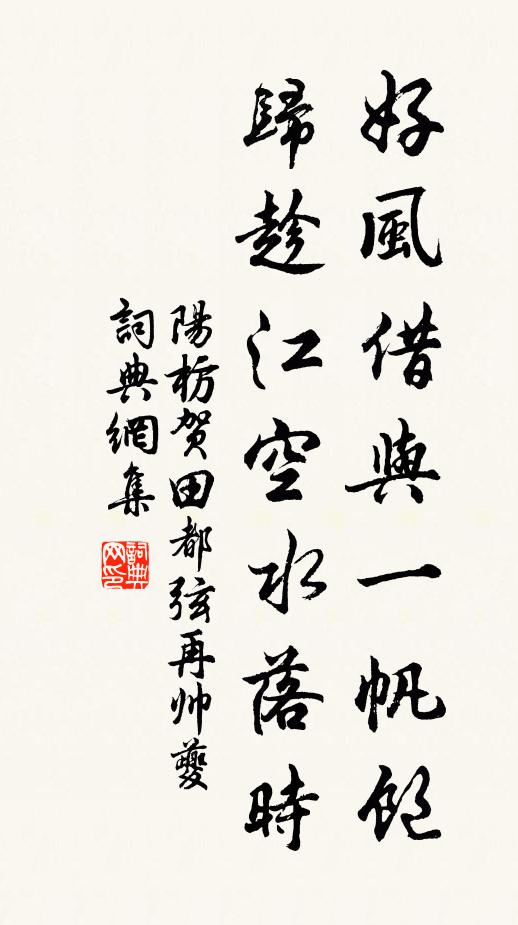 好風借與一帆飽
歸趁江空水落時
陽枋賀田都弦再帅夔
詞典網集
詞典网印